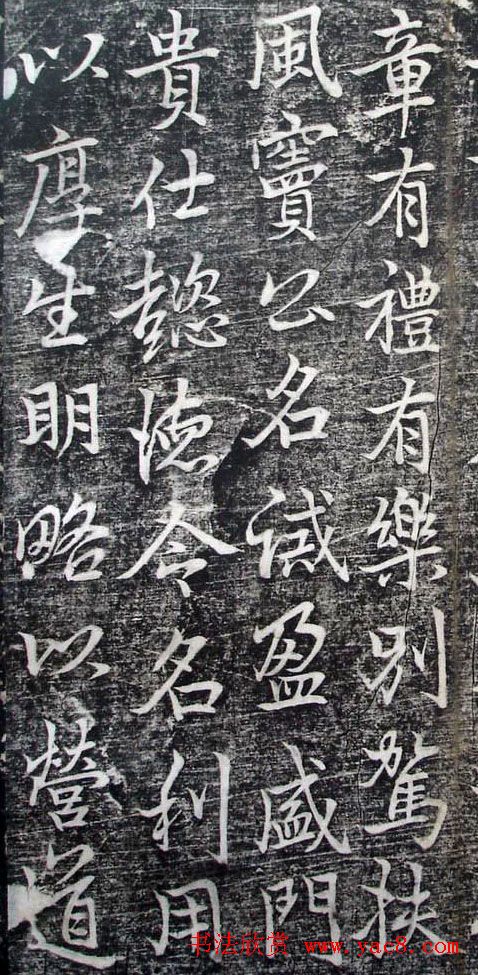 章有禮有樂別駕扶
風竇公名诫盈盛門
貴仕懿德令名利用
以厚生明略以營道
书法欣赏 www.yac8.com